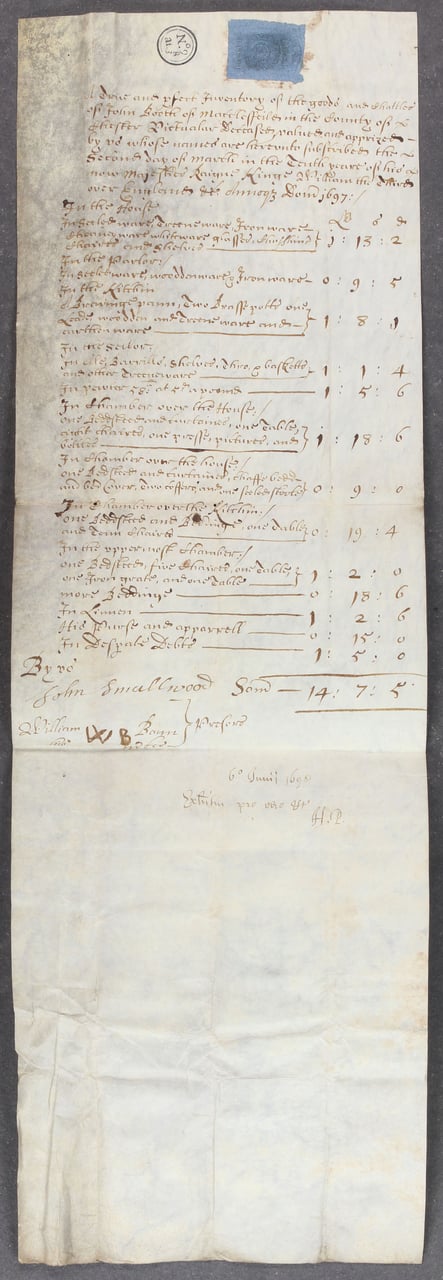 A true and pfect Inventory of the goods and Chattles
of John Booth of Macclesfeild in the County of
Chester Victualar Deceased, valued and apprized
by us whose names are hereunto subscribed the
Second day of March in the Tenth yeare of his
now Majesties Raigne Kinge William the Third
over England &c Annoqz Domi 1697:/
In the House
ware, Treeneware, Ironware
ware whiteware glasses
Chaires and Shelves 1 : 13 : 2
In the Parlor:/
In ware, woodenware & Ironware - 0 : 9 : 5
In the Kitchin
A Brewinge pann, Two Brasse potts one
Leade, wooden and Treeneware and
earthenware 1 : 8 : 1
In the Sellor;
In Ale, Barrills, Shelves, & basketts
and other Treeneware 1 : 1 : 4
In pewter at a pound 1 : 5 : 6
In Chamber over the House:/
one Bedsteed and curtaines, one Table,
eight chaires, one presse, pictures, and
1 : 18 : 6
In Chamber over the house:/
one Bedsteed and curtaines, Chaffe bedd
and bed Cover, Two coffers, and one 0 : 9 : 0
In Chamber over the Kitchin:/
one Bedsteed and Beddinge, one Table
and Tenn Chaires 0 : 19 : 4
In the uppermost Chamber:/
one Bedsteed, five Chaires, one Table,
one Iron grate, and one Table 1 : 2 : 0
more Beddinge 0 : 18 : 6
In Linnen 1 : 2 : 6
His Purse and apparrell 0 : 15 : 0
In Despate Debts 1 : 5 : 0
By us
John Smallwood Som - 14 : 7 : 5
William W B Bann
his
Prisers
6º Junij
pro vero &c
H.P.